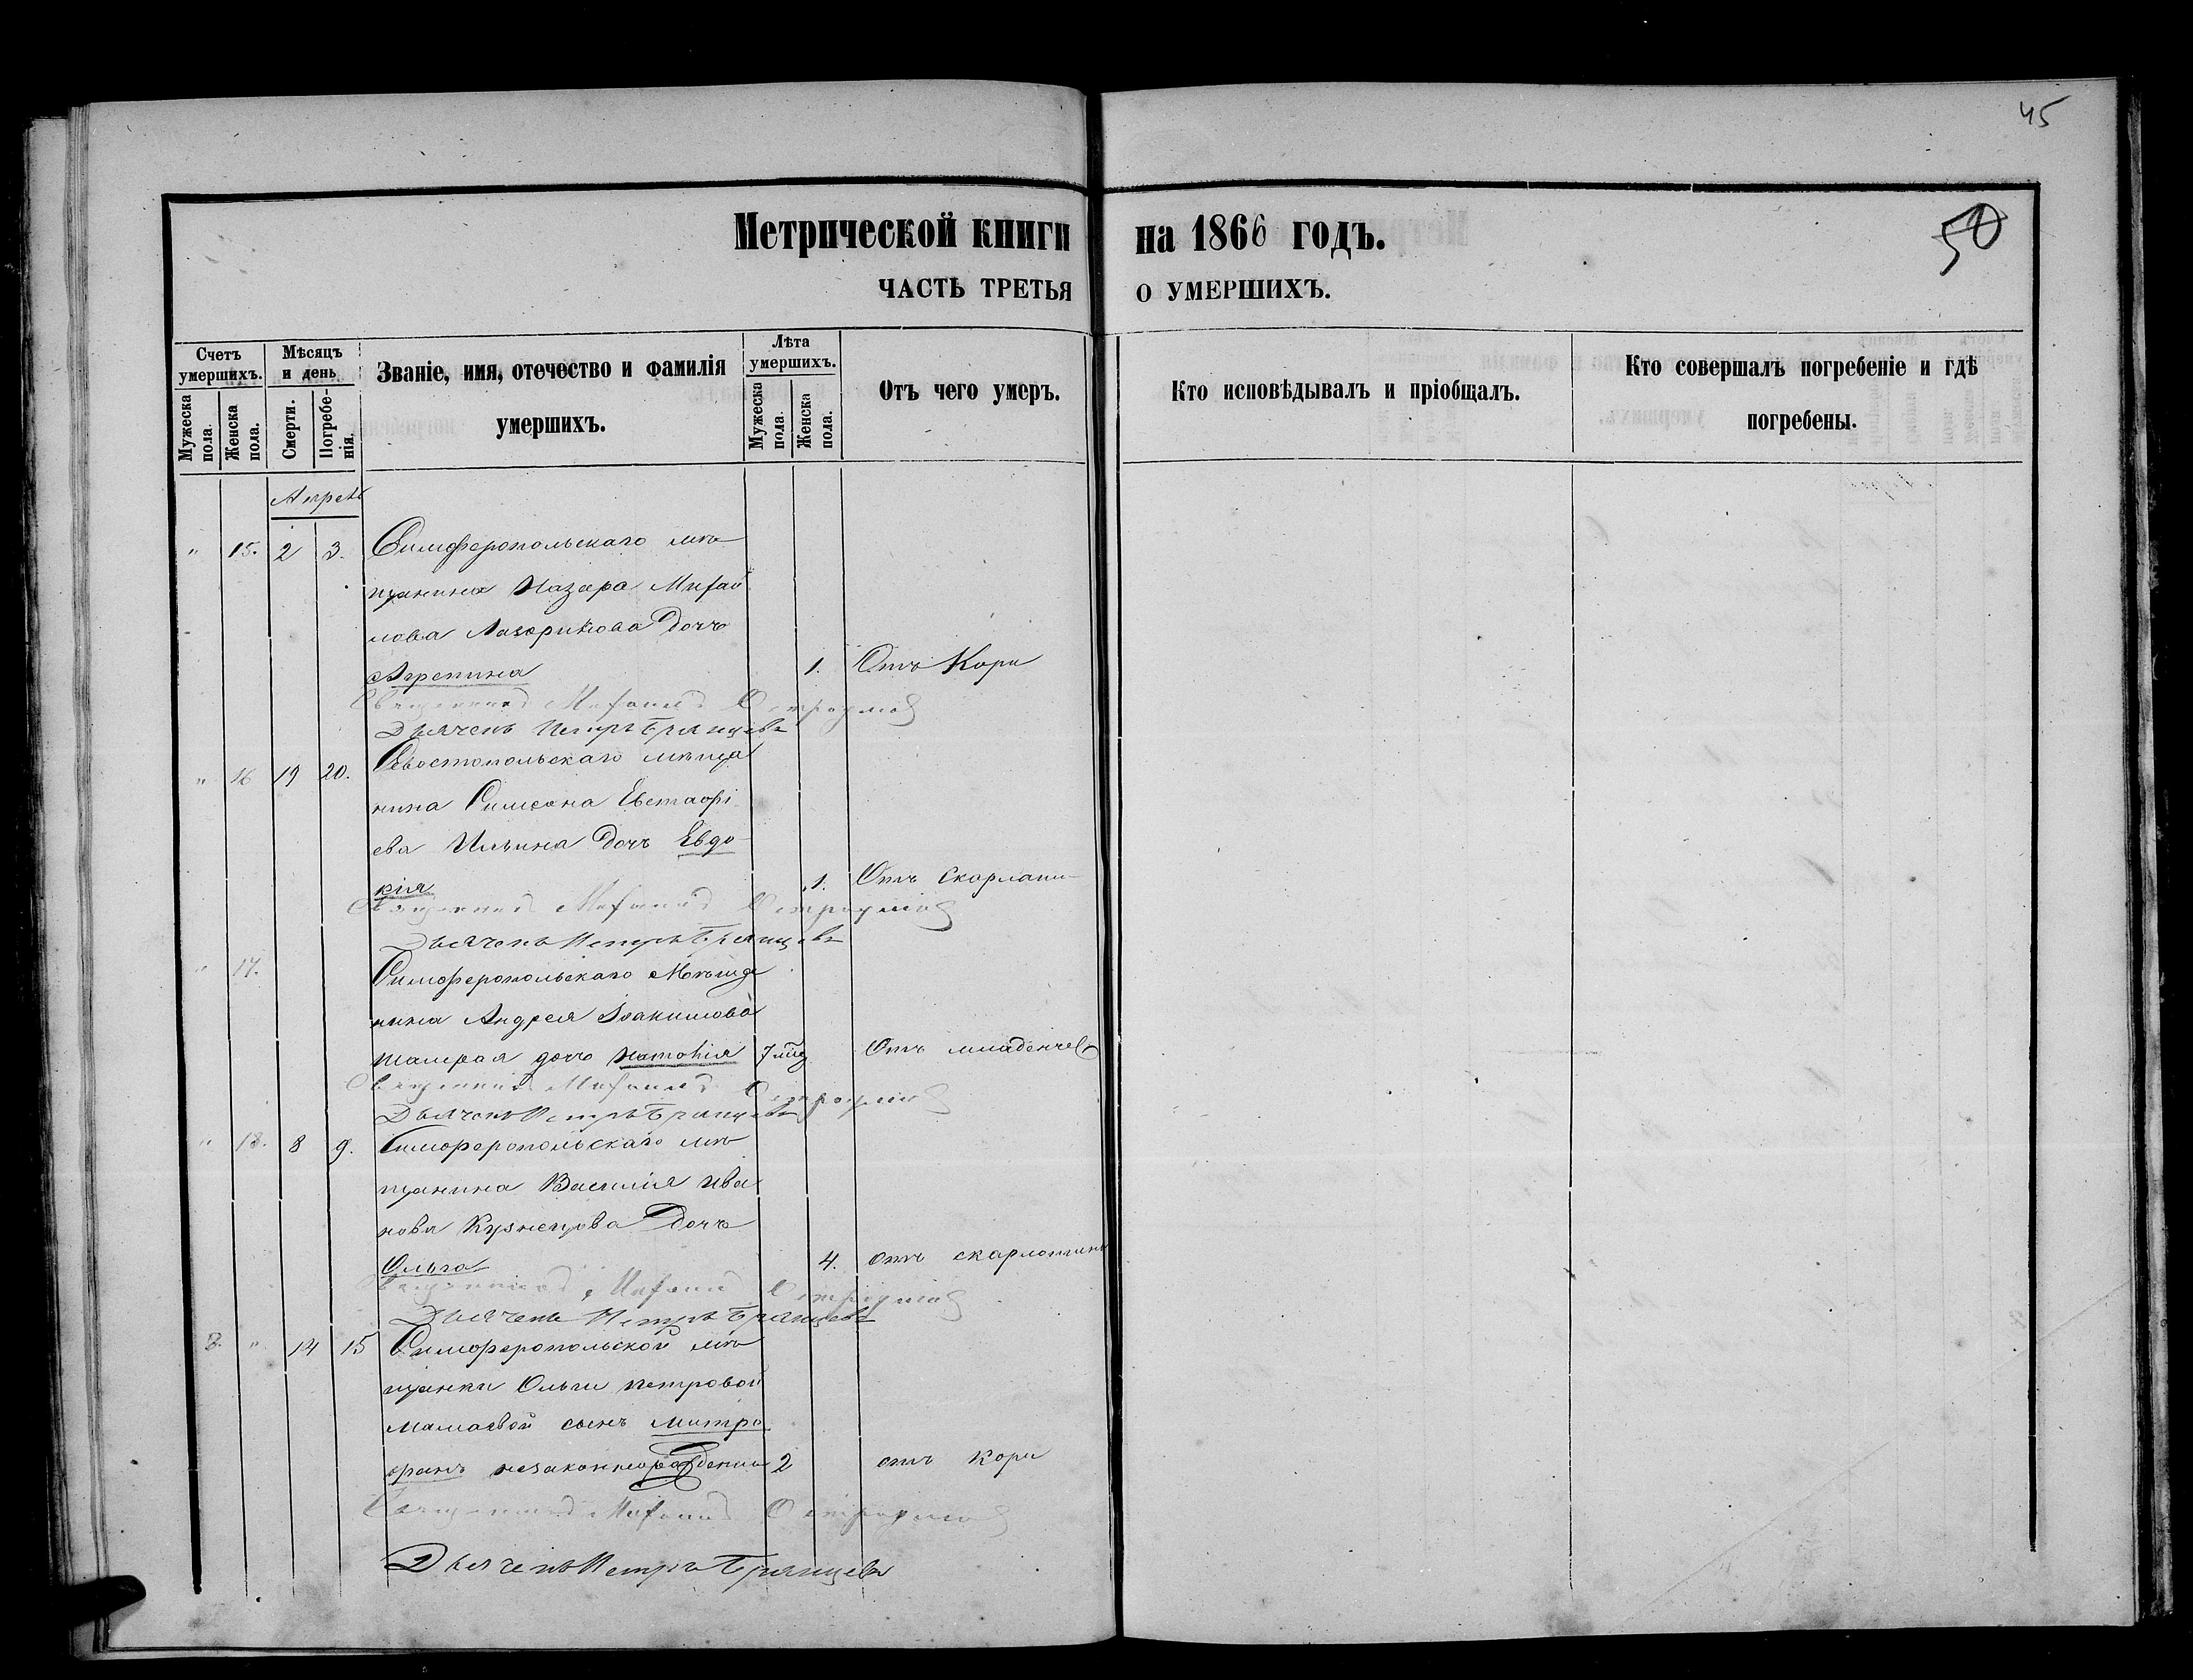 45
Метрической книги на 1866 годъ.
50
ЧАСТЬ ТРЕТЬЯ О УМЕРШИХЪ.
Счетъ умершихъ.
Мужеска пола.
Женска пола.
Мѣсяцъ и день
Смерти.
Погребенія.
Званіе, имя, отечество и фамилія умершихъ.
Лѣта умершихъ.
Мужеска пола.
Женска пола.
Отъ чего умеръ.
Кто исповѣдывалъ и пріобщалъ.
Кто совершалъ погребеніе и гдѣ погребены.
Апрель
" 15. 2 3. Симферопольскаго мѣ
щанина Назара Михай
лова Лазарикова дочь
Агрепина 1. Отъ Кори
Священникъ Михаилъ
Дьячекъ Петръ Брянцевъ
" 16 19 20. Севостопольскаго мѣща
нина Симеона Евстафі
ева Ильина дочь Евдо
кія 1. Отъ Скорлати
Священникъ Михаилъ
Дьячекъ Петръ Брянцевъ
" 17. Симферопольскаго Мѣща
нина Андрея Іоакимова
дочь 7 мѣц Отъ младенчес
Священникъ Михаилъ
Дьячекъ Петръ Брянцевъ
" 18. 8 9. Симферопольскаго мѣ
щанина Василія Ива
нова Кузнецова дочь
Ольга 4. отъ скарлотины
Священникъ Михаилъ
Дьячекъ Петръ Брянцевъ
" 14 15 Симферопольской мѣ
щанки Ольги Петровой
Мамаевой сынъ Митро
фанъ 2 отъ кори
Священникъ Михаилъ
Дьячекъ Петръ Брянцевъ